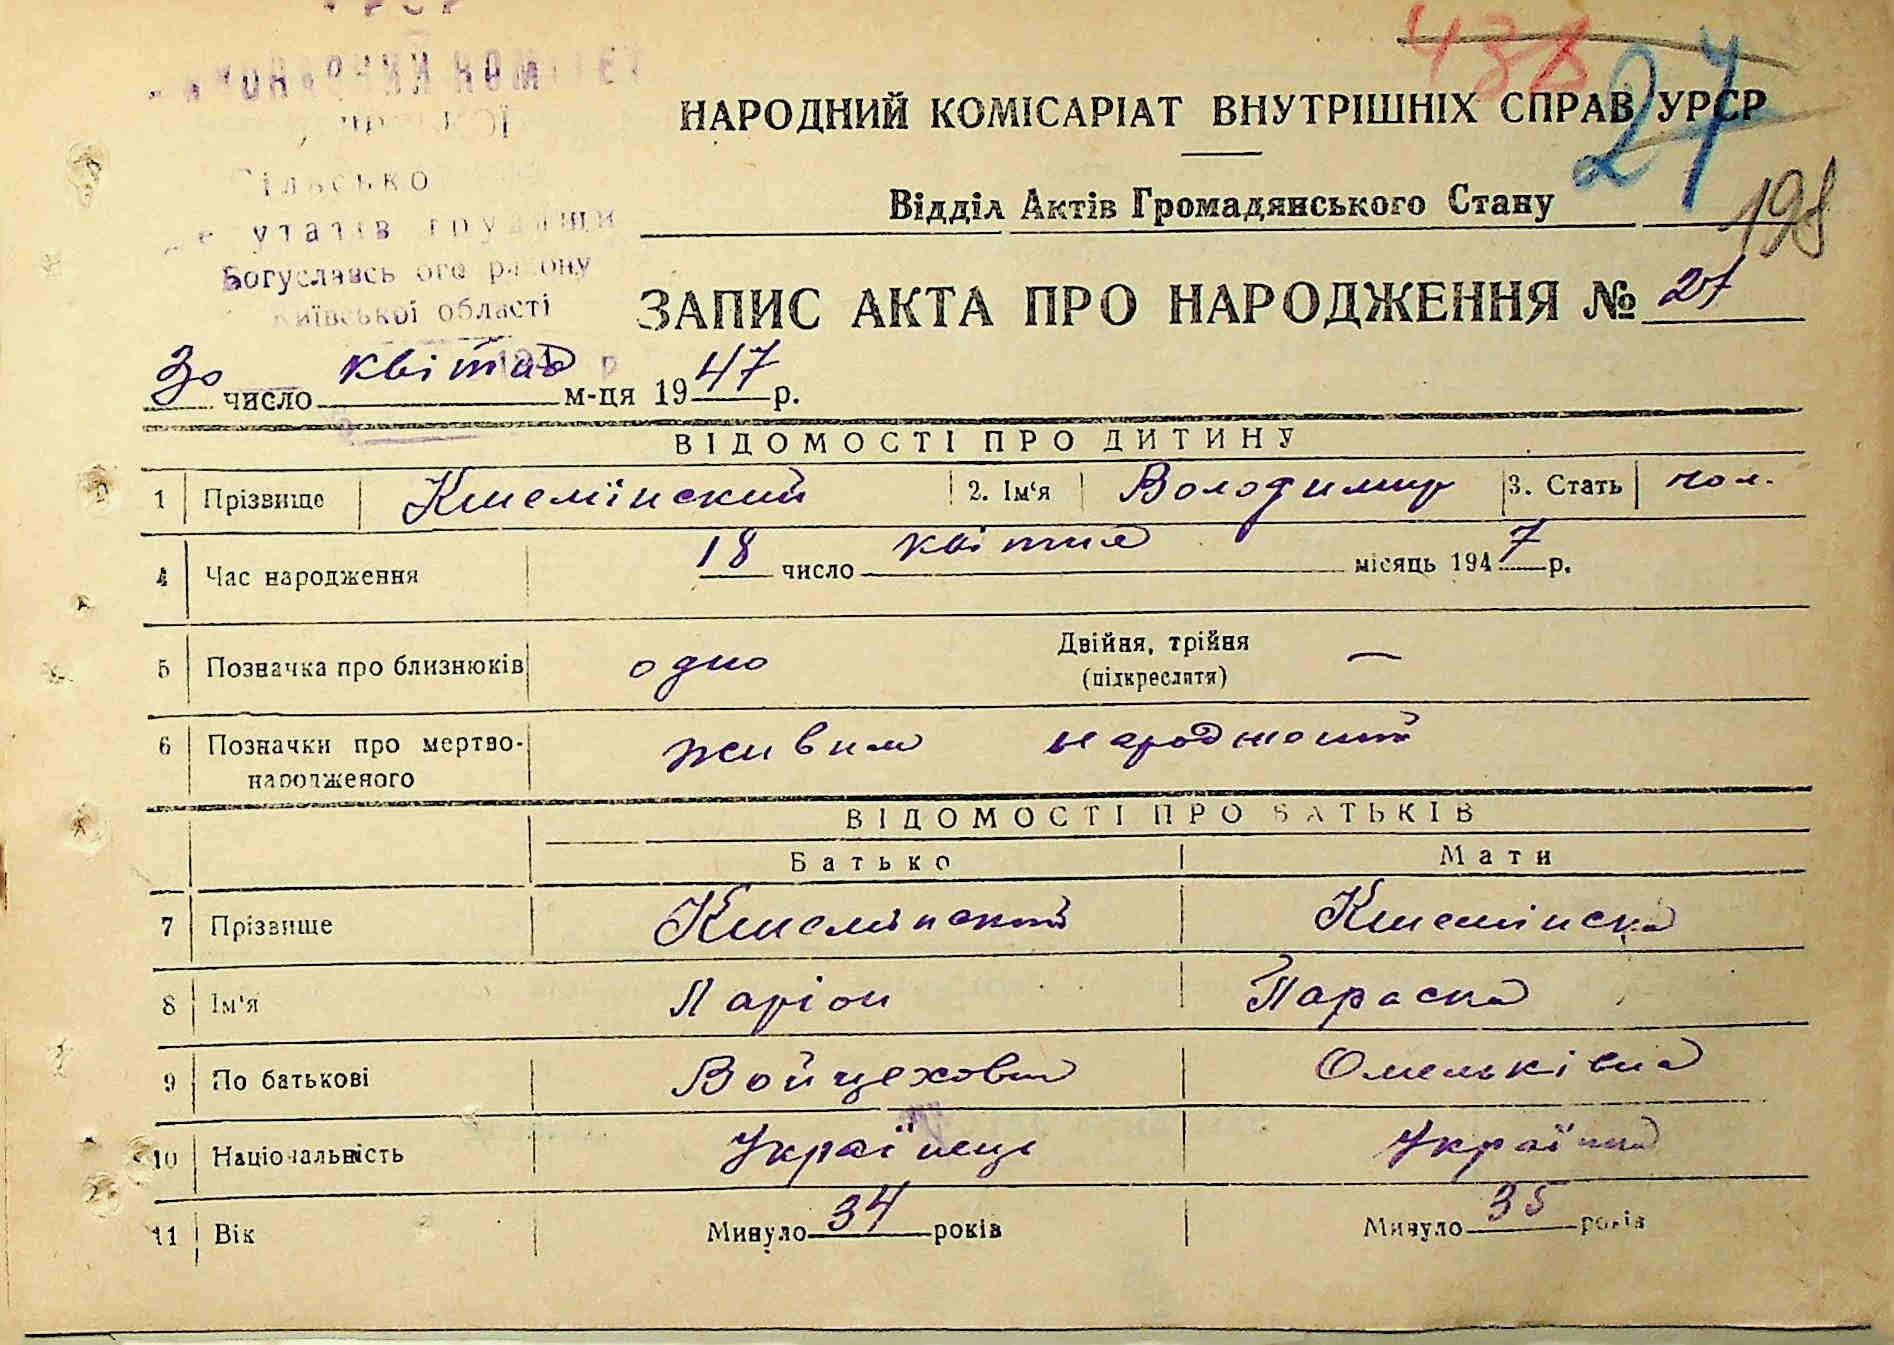 УРСР
438
27
НАРОДНИЙ КОМІСАРІАТ ВНУТРІШНІХ СПРАВ УРСР
Відділ Актів Громадянського Стану
198
Сільсько
депутатів трудящих
Богуславського району
Київської області
ЗАПИС АКТА ПРО НАРОДЖЕННЯ № 27
30 число квітня м-ця 1947 р.
ВІДОМОСТІ ПРО ДИТИНУ
1 Прізвище Кшемінский 2. Ім‘я Володимир 3. Стать чол.
4 Час народження 18 число квітня місяць 1947 р.
5 Позначка про близнюків одно Двійня, трійня (підкреслити) —
6 Позначки про мертвонародженого живим народжений
ВІДОМОСТІ ПРО БАТЬКІВ
Батько Мати
7 Прізвище Кшемінский Кшемінска
8 Ім'я Ларіон Параска
9 По батькові Войцехович Омельківна
10 Національність Українець Українка
11 Вік Минуло 34 років Минуло 35 років